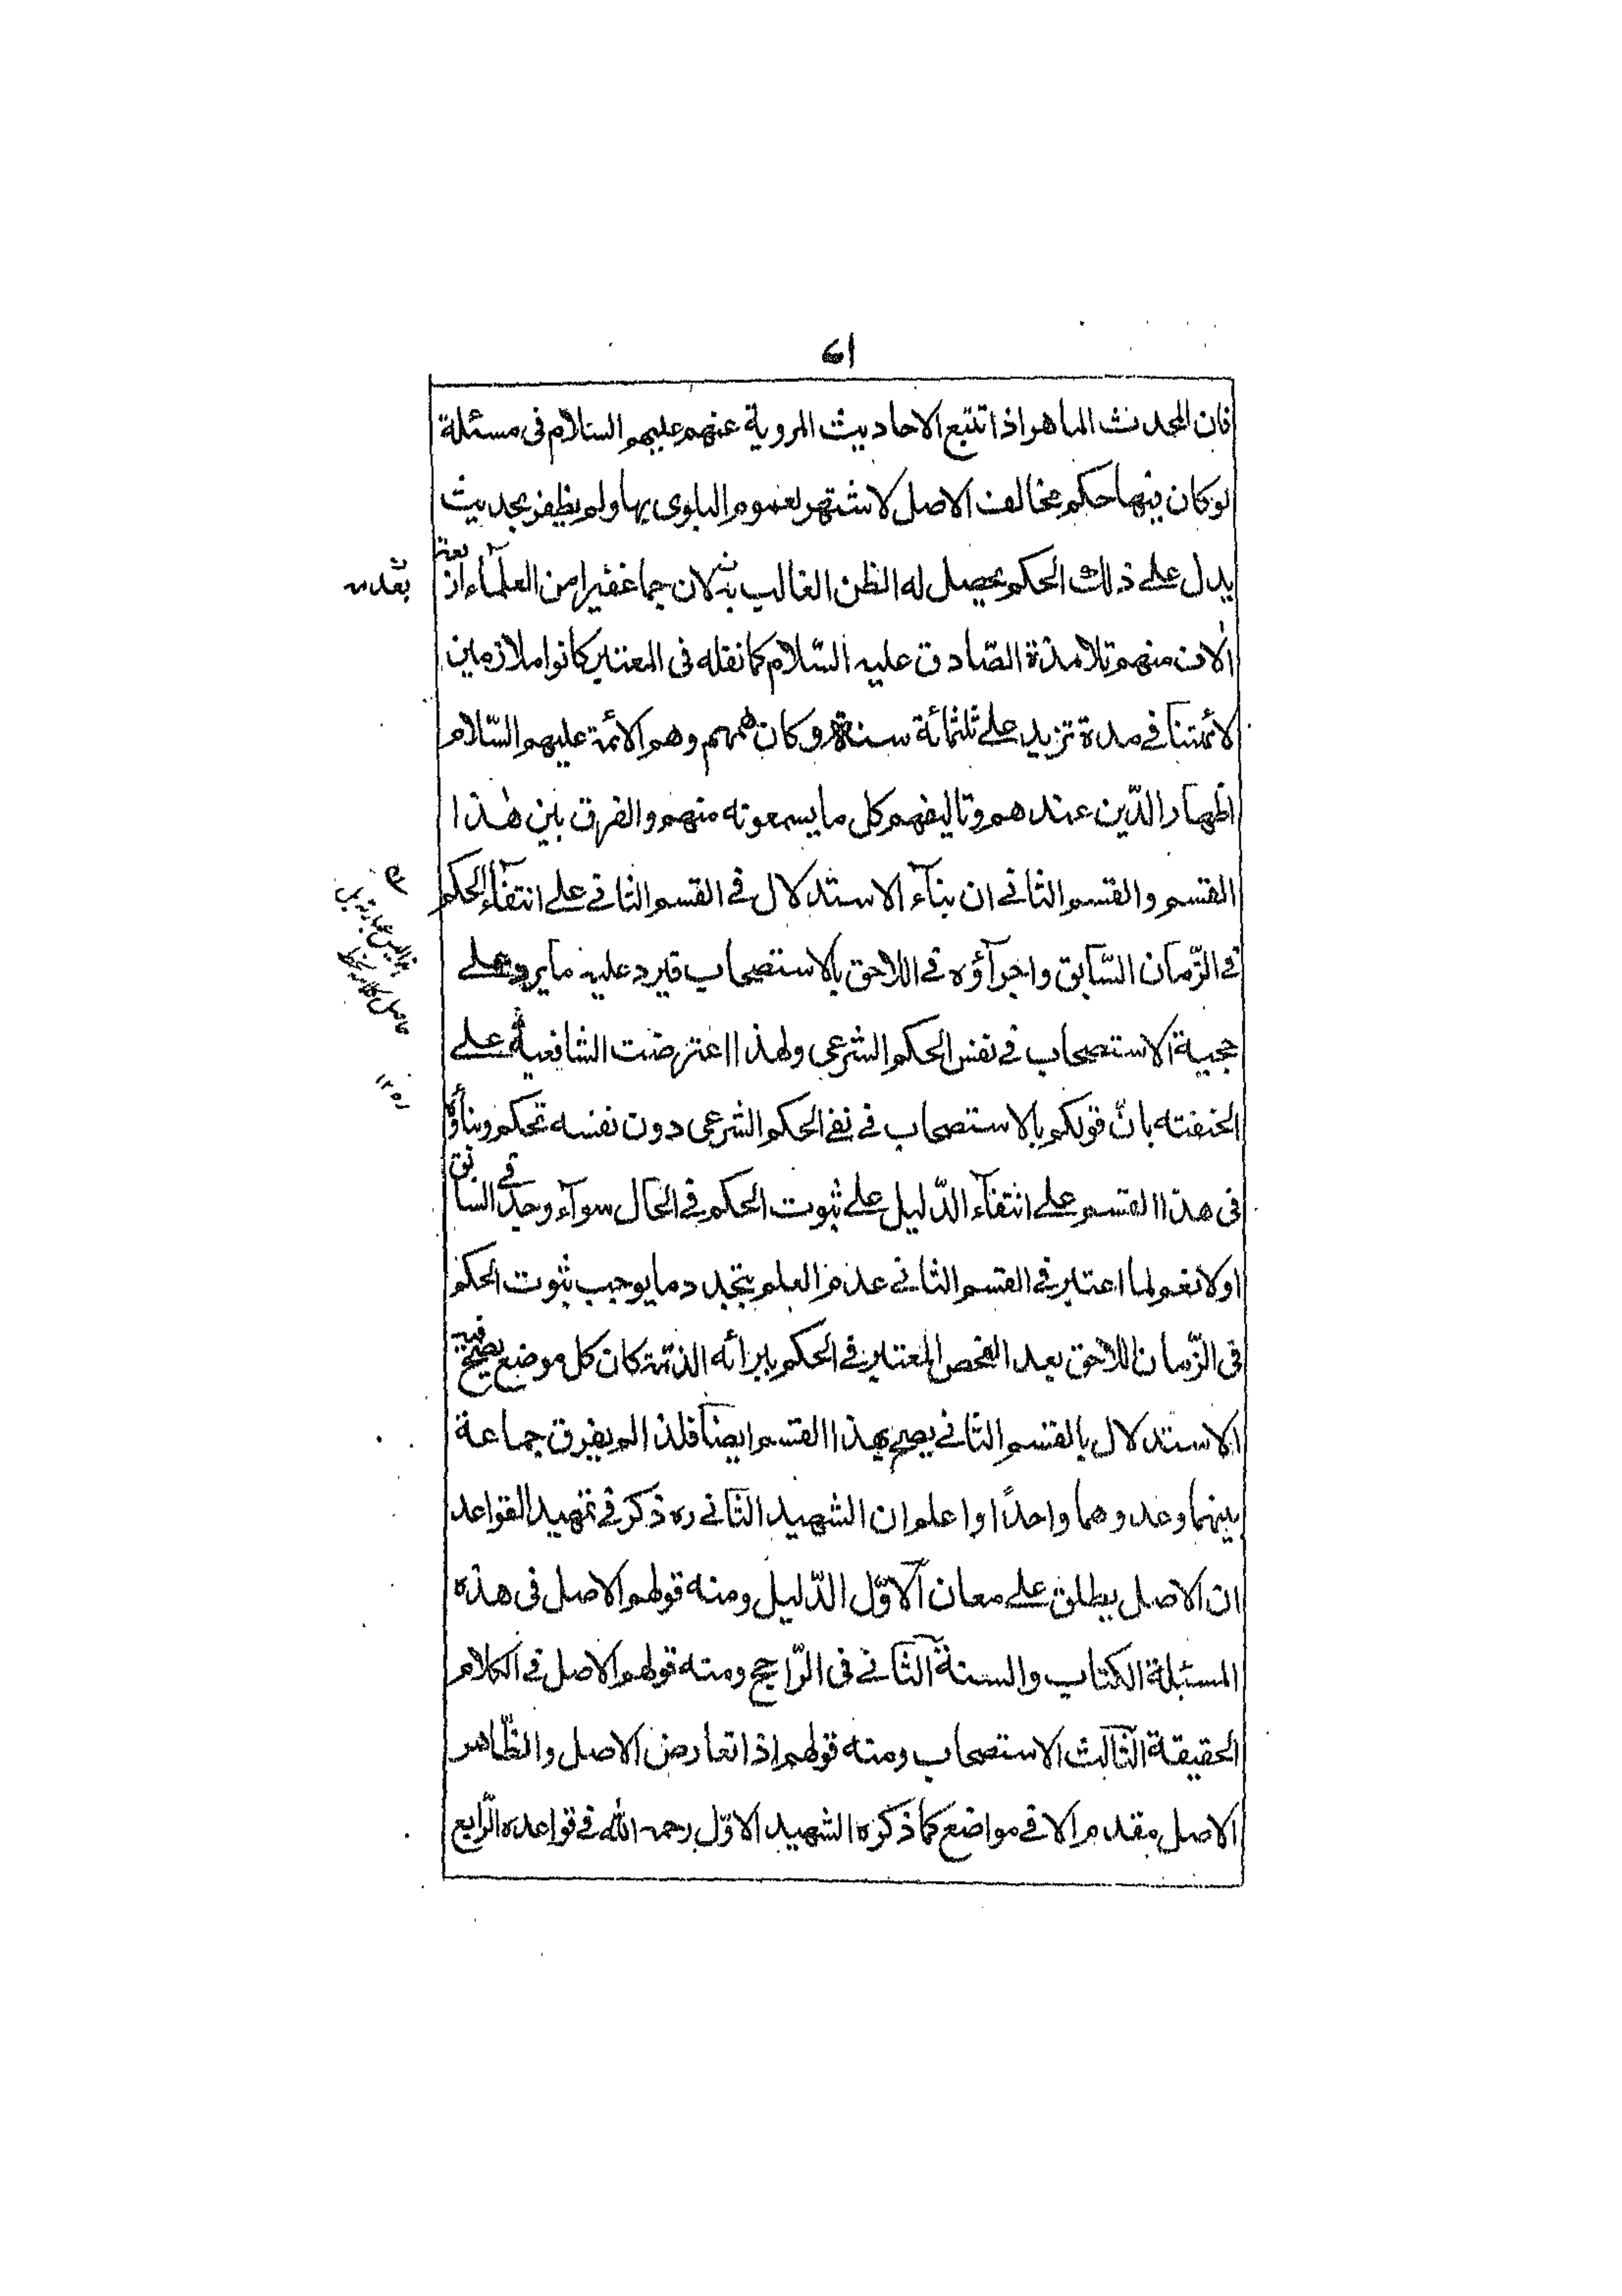 فان المحدث الماهر اذا تتبع الاحاديث المروية عنهم عليهم السلام فى مسئلة
لو كان فيها حكم مخالف الاصل لاشتهر لعموم البلوى بها ولم يظفر بحديث
يدل على ذلك الحكم يحصل له الظن الغالب به لان جما غفيرا من العلمآء اربعة
الاف منهم تلامذة الصّادق عليه السّلام كما نقله فى المعتبر كانوا ملازمين
لائمتنا فى مدة تزيد على ثلثمائة سنة وكان همهم وهم الائمة عليهم السّلام
اظهار الدّين عندهم وتاليفهم كل ما يسمعونه منهم والفرق بين هٰذا
القسم والقسم الثانى ان بنآء الاستدلال فى القسم الثانى على انتفآء الحكم
فى الزّمان السّابق واجرآؤه فى اللاحق بالاستصحاب فيرد عليه ما يرد على
حجية الاستصحاب فى نفس الحكم الشرعى ولهذا اعترضت الشافعية على
الحنفته بانّ قولكم بالاستصحاب فى نفى الحكم الشرعى دون نفسه تحكم وبنأؤه
فى هذا القسم على انتفآء الدّليل على ثبوت الحكم فى الحال سوآء وجد فى السابق
اولا نعم لما اعتبر فى القسم الثانى عدم العلم بتجدد ما يوجب ثبوت الحكم
فى الزّمان اللاحق بعد الفحص المعتبر فى الحكم ببرائه الذمّة كان كل موضع يصح فيه
الاستدلال بالقسم الثانى يصح بهذا القسم ايضا فلذا لم يفرق جماعة
بينهما وعدوهما واحدًا واعلم ان الشهيد الثّانى ره ذكر فى تمهيد القواعد
ان الاصل يطلق على معان الاوّل الدّليل ومنه قولهم الاصل فى هذه
المسئلة الكتاب والسنة الثّانى فى الرّاجح ومنه قولهم الاصل فى الكلام
الحقيقة الثّالث الاستصحاب ومنه قولهم اذا تعارض الاصل والظّاهر
الاصل مقدم الا فى مواضع كما ذكره الشهيد الاوّل رحمه الله فى قواعده الرّابع